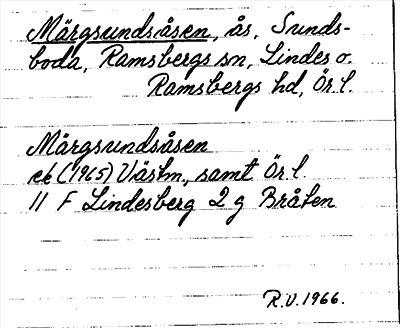 Märgsundsåsen, ås, Sunds-
boda, Ramsbergs sn, Lindes o.
Ramsbergs hd, Ör. l.
Märgsundsåsen
ek (1965) Västm, samt Ör. l.
11 F Lindesberg 2 g Bråten
R.V. 1966.